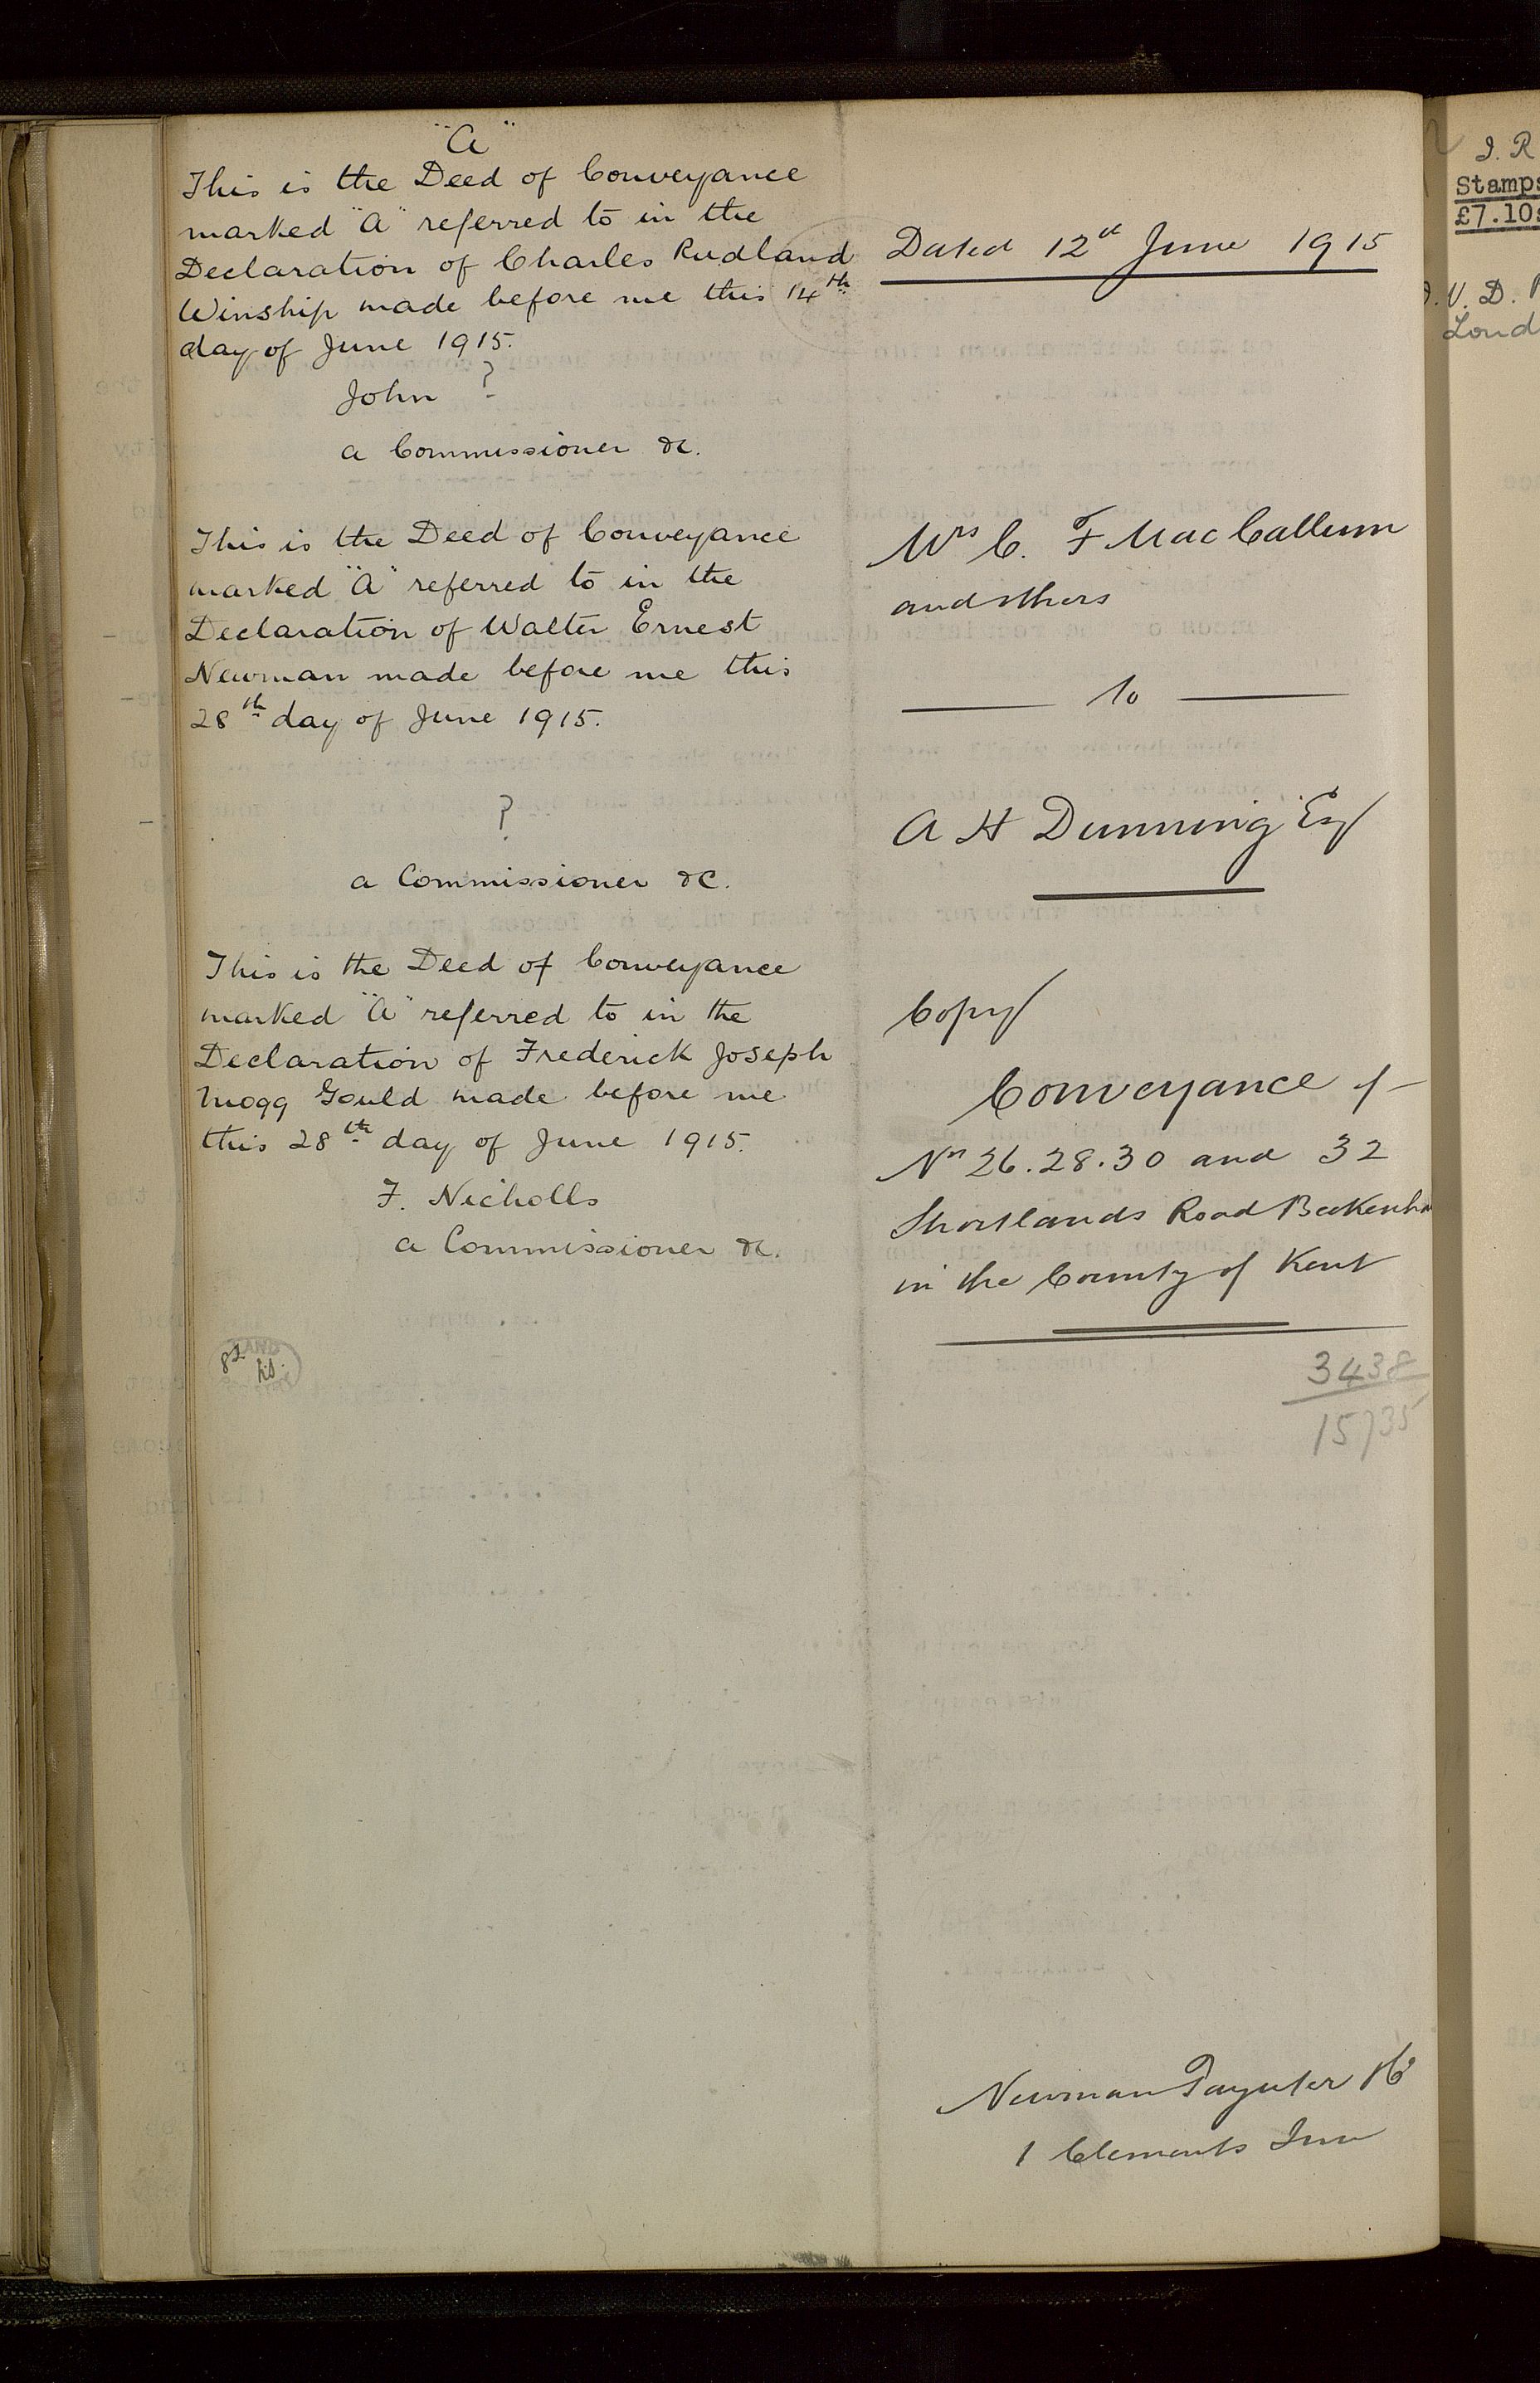 "A"
This is the Deed of Conveyance
marked "A" referred to in the
Declaration of Charles Rudland
Winship made before me this 14th
day of June 1915.
John ?
a Commissioner &c.
This is the Deed of Conveyance
marked "A" referred to in the
Declaration of Walter Ernest
Newman made before me this
28th day of June 1915.
?
a Commissioner &c.
This is the Deed of Conveyance
marked "A" referred to in the
Declaration of Frederick Joseph
Mogg Gould made before me
this 28th day of June 1915.
F. Nicholls
a Commissioner &c.
Dated 12th June 1915
Mrs C. F MacCallum
and others
to
A H Dunning Esq
Copy
Conveyance of
Nos 26.28.30 and 32
Shortlands Road Beckenham
in the County of Kent
3438
15735
Newman Paynter & Co
1 Clements Inn
Stamps
£7.10s